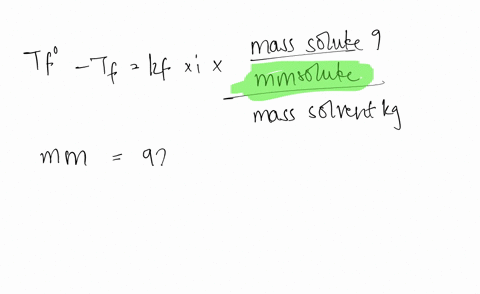 Tf° - Tf = kf × i × mass solute g
mm solute
mass solvent kg
mm = 92